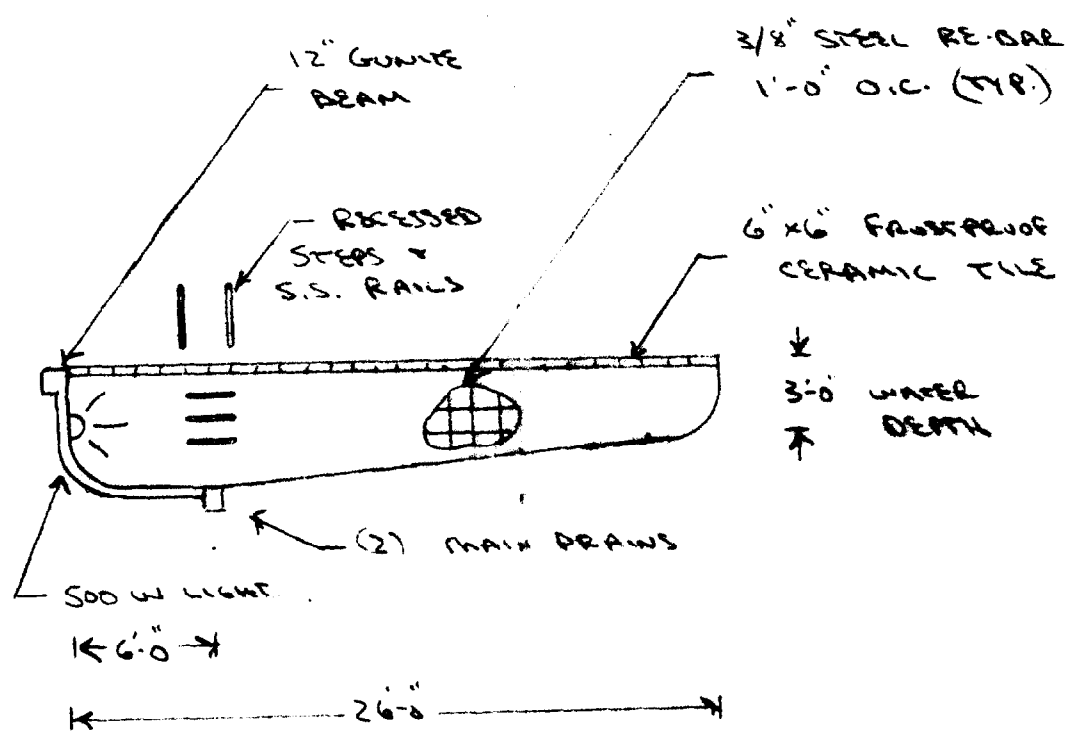 12" GUNITE
BEAM
3/8" STEEL RE-BAR
1'-0" O.C. (TYP.)
RECESSED
STEPS &
S.S. RAILS
6" x 6" FROSTPROOF
CERAMIC TILE
3'-0" WATER
DEPTH
(2) MAIN DRAINS
500 W LIGHT
6'-0"
26'-0"